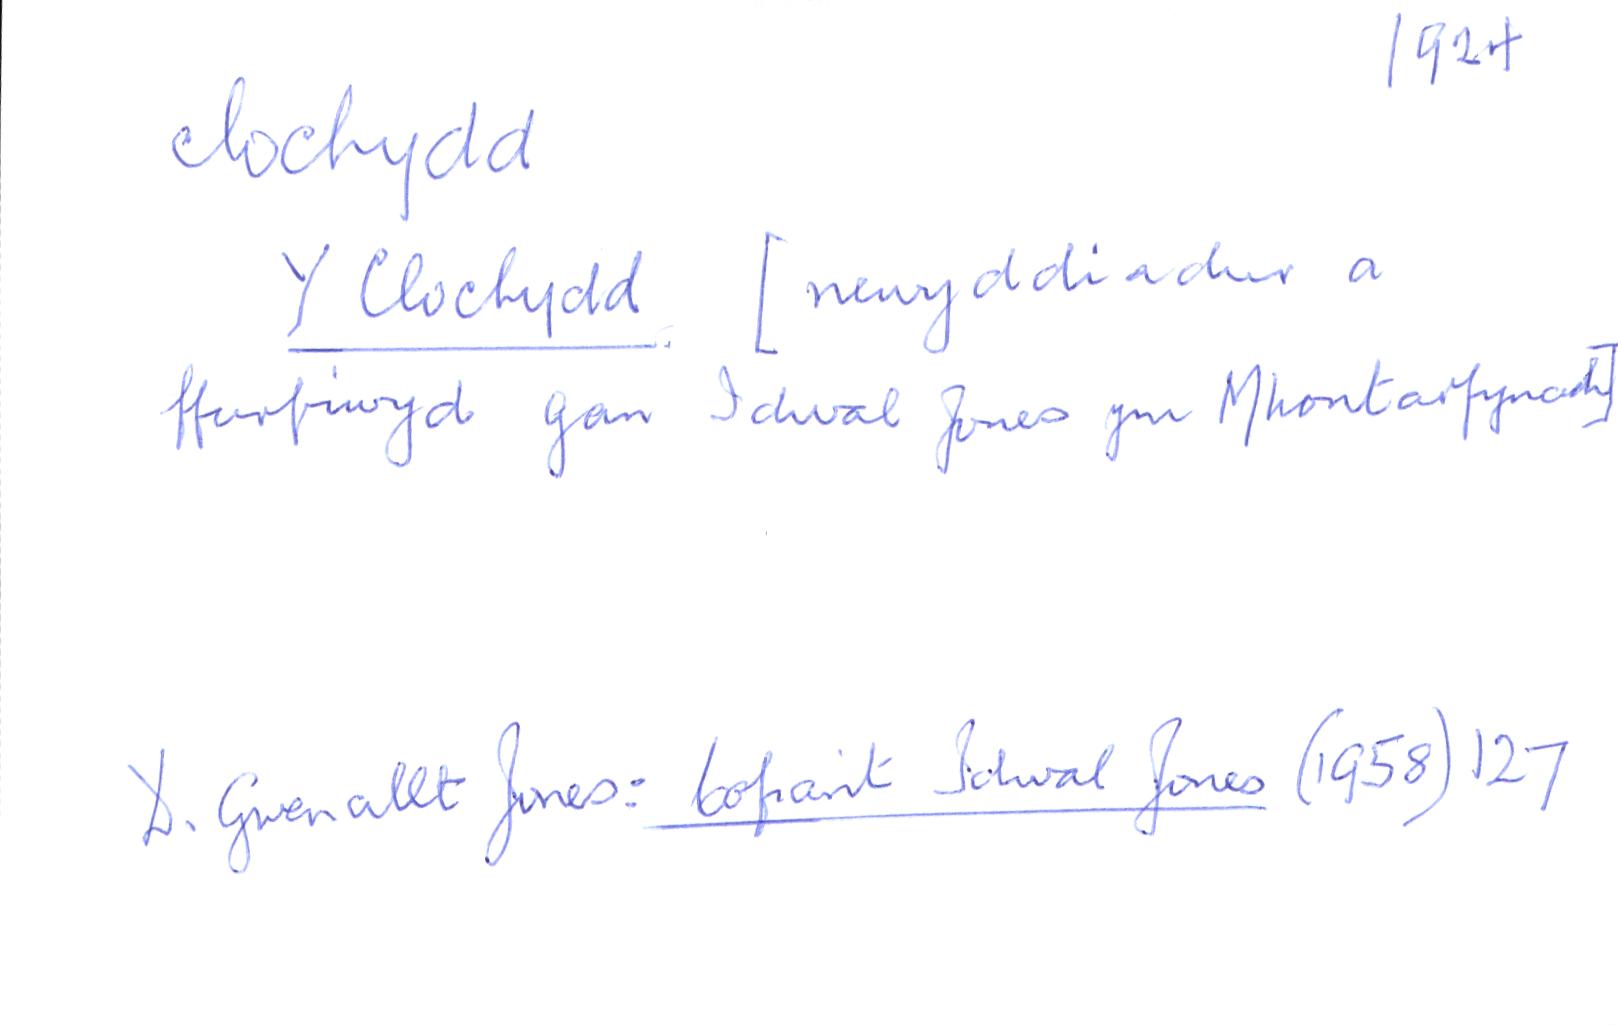 1924
clochydd
Y Clochydd [newyddiadur a
ffurfiwyd gan Idwal Jones ym Mhontarfynach]
D. Gwenallt Jones: Cofiant Idwal Jones (1958) 127